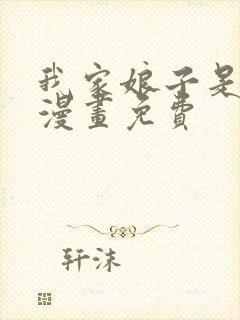 我家娘子是
漫畫免費
轩沫